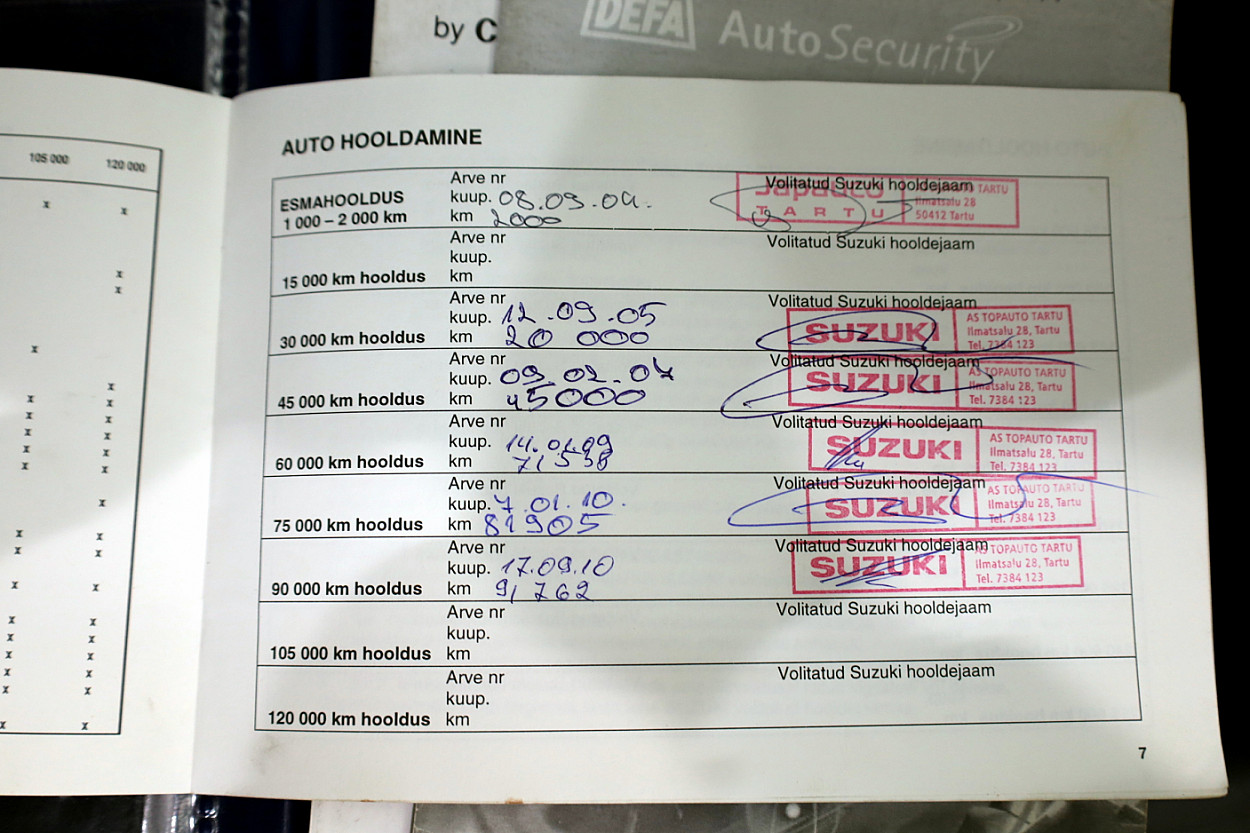 by C
DEFA AutoSecurity
105 000 120 000
AUTO HOOLDAMINE
ESMAHOOLDUS
1 000 – 2 000 km
Arve nr
kuup. 08.09.04.
km 2000
Volitatud Suzuki hooldejaam
Japauto TARTU
TARTU
Ilmatsalu 28
50412 Tartu
15 000 km hooldus
Arve nr
kuup.
km
Volitatud Suzuki hooldejaam
30 000 km hooldus
Arve nr
kuup. 12.09.05
km 20 000
Volitatud Suzuki hooldejaam
SUZUKI
AS TOPAUTO TARTU
Ilmatsalu 28, Tartu
Tel. 7384 123
45 000 km hooldus
Arve nr
kuup. 09.02.07
km 45000
Volitatud Suzuki hooldejaam
SUZUKI
AS TOPAUTO TARTU
Ilmatsalu 28, Tartu
Tel. 7384 123
60 000 km hooldus
Arve nr
kuup.
km 71538
Volitatud Suzuki hooldejaam
SUZUKI
AS TOPAUTO TARTU
Ilmatsalu 28, Tartu
Tel. 7384 123
75 000 km hooldus
Arve nr
kuup. 7.01.10.
km 81905
Volitatud Suzuki hooldejaam
SUZUKI
AS TOPAUTO TARTU
Ilmatsalu 28, Tartu
Tel. 7384 123
90 000 km hooldus
Arve nr
kuup. 17.09.10
km 91762
Volitatud Suzuki hooldejaam
SUZUKI
AS TOPAUTO TARTU
Ilmatsalu 28, Tartu
Tel. 7384 123
105 000 km hooldus
Arve nr
kuup.
km
Volitatud Suzuki hooldejaam
120 000 km hooldus
Arve nr
kuup.
km
Volitatud Suzuki hooldejaam
7